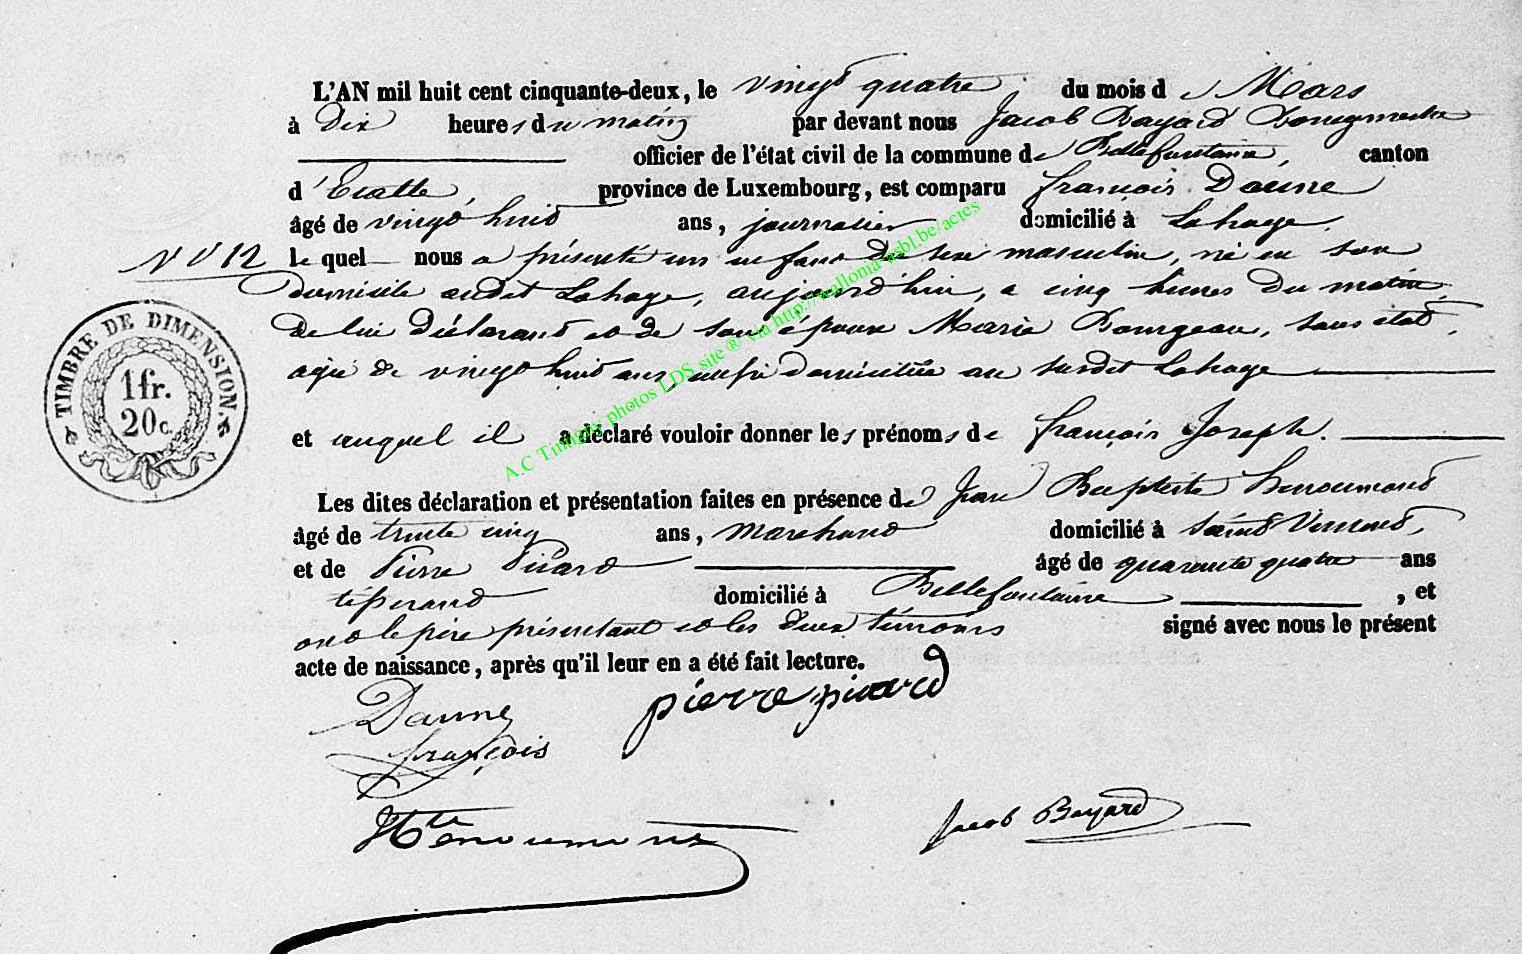 L'AN mil huit cent cinquante-deux, le vingt quatre du mois de Mars
à Dix heures du matin par devant nous Jacob Bayard Bourgmestre
officier de l'état civil de la commune de Bellefontaine, canton
d'Etalle, province de Luxembourg, est comparu françois Daune
âgé de vingt huit ans, journalier domicilié à Lahage,
N° 12 le quel nous a présenté un enfant du sexe masculin, né en son
domicile audit Lahage, aujourd'hui, a cinq heures du matin,
de lui déclarant et de son épouse Marie Bourgeau, sans état,
agée de vingt huit ans, aussi domiciliée au susdit Lahage
TIMBRE DE DIMENSION.
1 fr.
20 c.
et auquel il a déclaré vouloir donner les prénoms de françois Joseph.
Les dites déclaration et présentation faites en présence de Jean Baptiste Henoumont
âgé de trente cinq ans, Marchand domicilié à Saint Vincent,
et de Pierre Picard âgé de quarante quatre ans
tisserand domicilié à Bellefontaine, et
ont le père présentant et les deux témoins signé avec nous le présent
acte de naissance, après qu'il leur en a été fait lecture.
Daune pierre picard
françois
Henoumont Jacob Bayard
A.C Tintigny photos LDS site ® via http://wallonia-asbl.be/actes